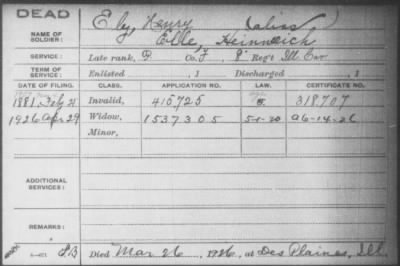 DEAD
NAME OF SOLDIER: Ely, Henry (alias)
Elle, Heinreich
SERVICE: Late rank, P Co. F, 8" Reg't Ill. Cav.
TERM OF SERVICE: Enlisted , 1 Discharged , 1
DATE OF FILING. CLASS. APPLICATION NO. LAW. CERTIFICATE NO.
1881, July 21 Invalid, 415,725 318,707
1926 Apr 29 Widow, 1537305 5-1-20 a6-14-26
Minor,
ADDITIONAL SERVICES:
REMARKS:
Died Mar 26, 1926, at Des Plaines, Ill.